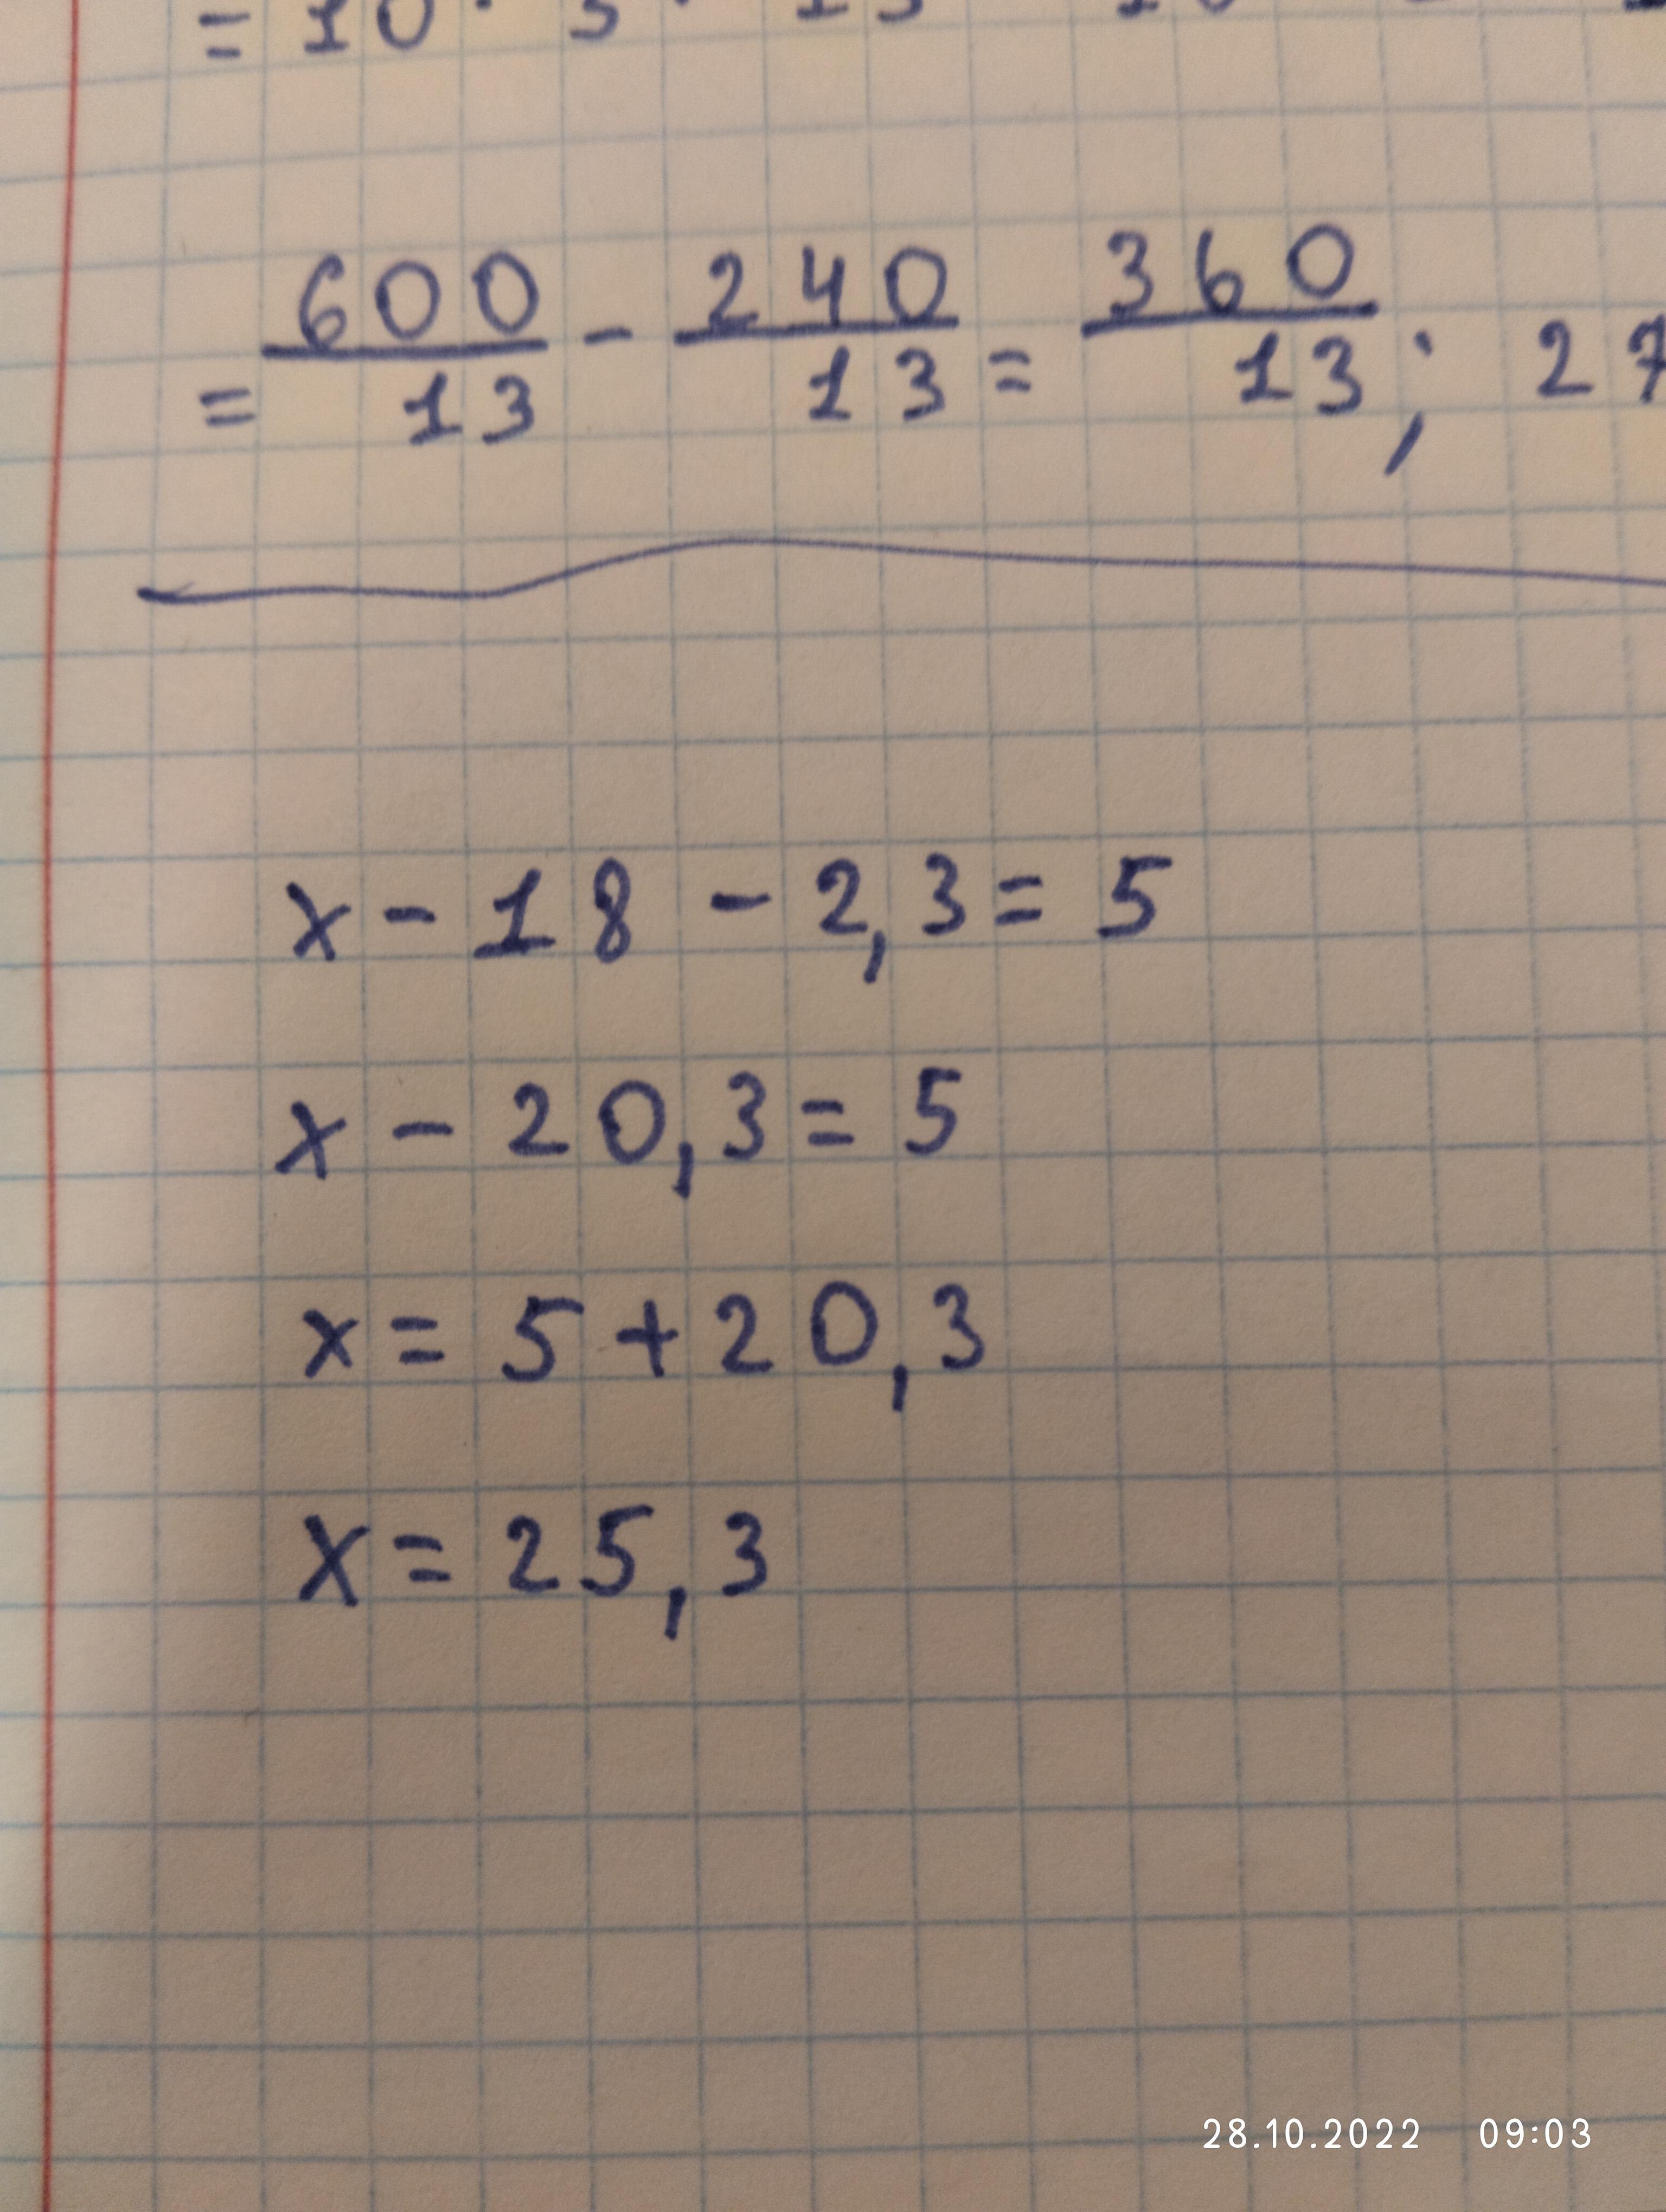 = 600/13 - 240/13 = 360/13; 27
x - 18 - 2,3 = 5
x - 20,3 = 5
x = 5 + 20,3
x = 25,3
28.10.2022 09:03